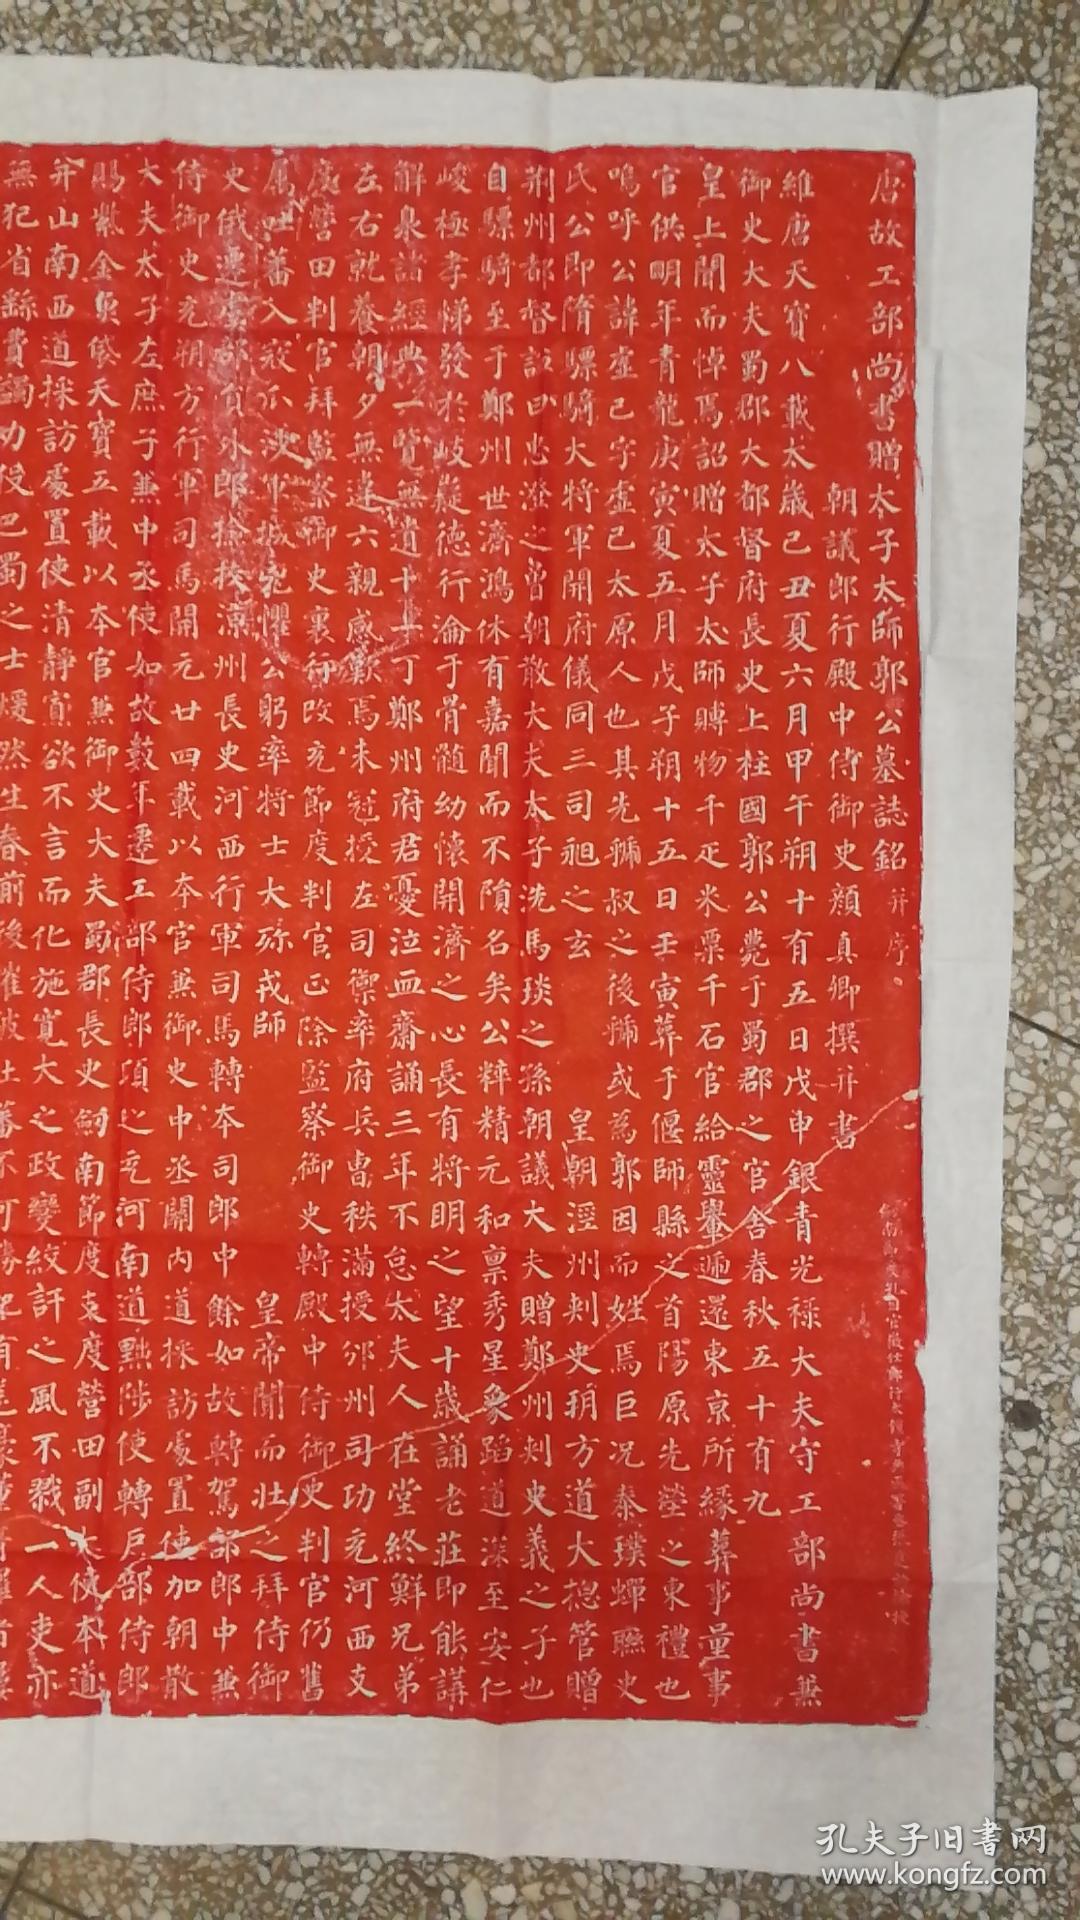 唐故工部尚書贈太子太師郭公墓誌銘并序
朝議郎行殿中侍御史顏真卿撰并書
維唐天寶八載太歲己丑夏六月甲午朔十有五日戊申銀青光祿大夫守工部尚書兼
御史大夫蜀郡大都督府長史上柱國郭公薨于蜀郡之官舍春秋五十有九
皇上聞而悼焉詔贈太子太師賻物千疋米粟千石官給靈轝遞還東京所緣葬事量事
官供明年青龍庚寅夏五月戊子朔十五日壬寅葬于偃師縣之首陽原先塋之東禮也
嗚呼公諱虛己字虛己太原人也其先虢叔之後虢或為郭因而姓焉巨況秦璞蟬聯史
氏公即隋驃騎大將軍開府儀同三司昶之玄 皇朝涇州刺史朔方道大摠管贈
荊州都督諡曰忠澄之曾朝散大夫太子洗馬琰之孫朝議大夫贈鄭州刺史義之子也
自驃騎至于鄭州世濟鴻休有嘉聞而不隕名矣公粹精元和禀秀星象蹈道深至安仁
峻極孝悌發於岐嶷德行淪于骨髓幼懷開濟之心長有將明之望十歲誦老莊即能講
解泉諸經典一覽無遺十丁鄭州府君憂泣血齋誦三年不怠太夫人在堂終鮮兄弟
左右就養朝夕無違六親感歎焉未冠授左司禦率府兵曹秩滿授邠州司功充河西支
度營田判官拜監察御史裏行改充節度判官正除監察御史轉殿中侍御史判官仍舊
屬吐蕃入寇瓜沙軍城兇懼公躬率將士大殄戎師 皇帝聞而壯之拜侍御
史俄遷虞部員外郎檢校涼州長史河西行軍司馬轉本司郎中餘如故轉駕部郎中兼
侍御史充朔方行軍司馬開元廿四載以本官兼御史中丞關內道採訪處置使加朝散
大夫太子左庶子兼中丞使如故數年遷工部侍郎頃之充河南道黜陟使轉戶部侍郎
賜紫金魚袋天寶五載以本官兼御史大夫蜀郡長史劒南節度支度營田副大使本道
并山南西道採訪處置使清靜寡欲不言而化施寬大之政變絞訐之風不戮一人吏亦
無犯省繇費蠲力役巴蜀之士煖然生春前後摧破吐蕃不可勝